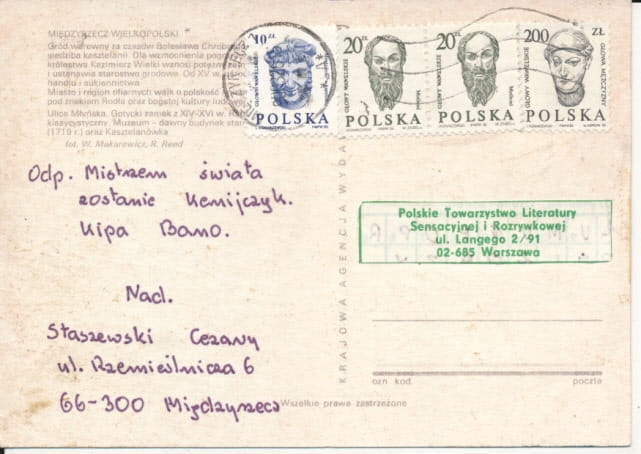 MIĘDZYRZECZ WIELKOPOLSKI
Gród warowny za czasów Bolesława Chrobrego
siedziba kasztelanii. Dla wzmocnienia
królestwa Kazimierz Wielki wznosi
i ustanawia starostwo grodowe. Od XV w.
handlu i sukiennictwa.
Miasto i region ofiarnych walk o polskość
pod znakiem Rodła oraz bogatej kultury
Ulica Młyńska. Gotycki zamek z XIV-XVI w.
klasycystyczny. Muzeum - dawny budynek
(1719 r.) oraz Kasztelanówka
fot. W. Makarewicz, R. Reed
10 ZŁ
GŁOWY WAWELSKIE
POLSKA
20 ZŁ
GŁOWY WAWELSKIE
POLSKA
20 ZŁ
GŁOWY WAWELSKIE
POLSKA
200 ZŁ
GŁOWY WAWELSKIE
GŁOWA MĘŻCZYZNY
POLSKA
Odp. Mistrzem świata
zostanie Kenijczyk.
Kipa Bano.
Nad.
Staszewski Cezary
ul. Rzemieślnicza 6
66-300 Międzyrzecz
KRAJOWA AGENCJA WYDA
Polskie Towarzystwo Literatury
Sensacyjnej i Rozrywkowej
ul. Langego 2/91
02-685 Warszawa
ozn kod poczta
Wszelkie prawa zastrzeżone